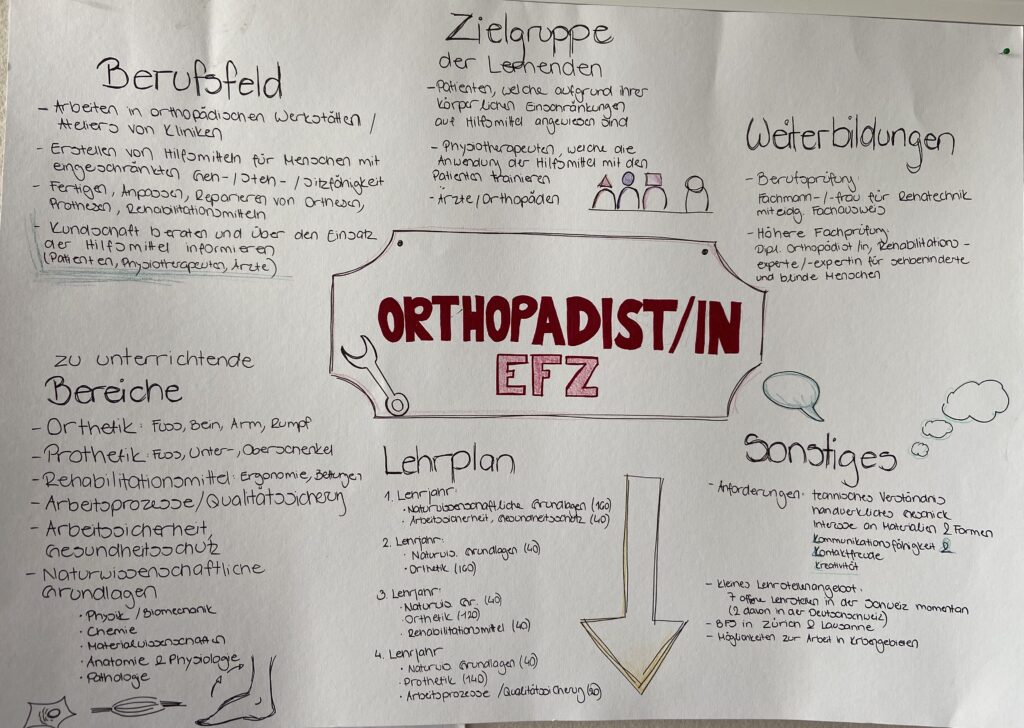 Berufsfeld
- Arbeiten in orthopädischen Werkstätten /
Ateliers von Kliniken
- Erstellen von Hilfsmitteln für Menschen mit
eingeschränkten Geh-/Steh-/Sitzfähigkeit
- Fertigen, Anpassen, Reparieren von Orthesen,
Prothesen, Rehabilitationsmitteln
- Kundschaft beraten und über den Einsatz
der Hilfsmittel informieren
(Patienten, Physiotherapeuten, Ärzte)
Zielgruppe
der Lernenden
- Patienten, welche aufgrund ihrer
körperlichen Einschränkungen
auf Hilfsmittel angewiesen sind
- Physiotherapeuten, welche die
Anwendung der Hilfsmittel mit den
Patienten trainieren
- Ärzte/Orthopäden
Weiterbildungen
- Berufsprüfung:
Fachmann-/-frau für Rehatechnik
mit eidg. Fachausweis
- Höhere Fachprüfung:
Dipl. Orthopädist/in, Rehabilitations-
experte/-expertin für sehbehinderte
und blinde Menschen
ORTHOPÄDIST/IN
EFZ
zu unterrichtende
Bereiche
- Orthetik: Fuss, Bein, Arm, Rumpf
- Prothetik: Fuss, Unter-, Oberschenkel
- Rehabilitationsmittel: Ergonomie, Bettungen
- Arbeitsprozesse/Qualitätssicherung
- Arbeitssicherheit,
Gesundheitsschutz
- Naturwissenschaftliche
Grundlagen
• Physik/Biomechanik
• Chemie
• Materialwissenschaften
• Anatomie & Physiologie
• Pathologie
Lehrplan
1. Lehrjahr:
• Naturwissenschaftliche Grundlagen (160)
• Arbeitssicherheit, Gesundheitsschutz (40)
2. Lehrjahr:
• Naturwis. Grundlagen (40)
• Orthetik (160)
3. Lehrjahr:
• Naturwis. Gr. (40)
• Orthetik (120)
• Rehabilitationsmittel (40)
4. Lehrjahr
• Naturwis. Grundlagen (40)
• Prothetik (140)
• Arbeitsprozesse/Qualitätssicherung (20)
Sonstiges
- Anforderungen: technisches Verständnis
handwerkliches Geschick
Interesse an Materialien & Formen
Kommunikationsfähigkeit &
Kontaktfreude
Kreativität
- kleines Lehrstellenangebot:
7 offene Lehrstellen in der Schweiz momentan
(2 davon in der Deutschschweiz)
- BFS in Zürich & Lausanne
- Möglichkeiten zur Arbeit in Krisengebieten